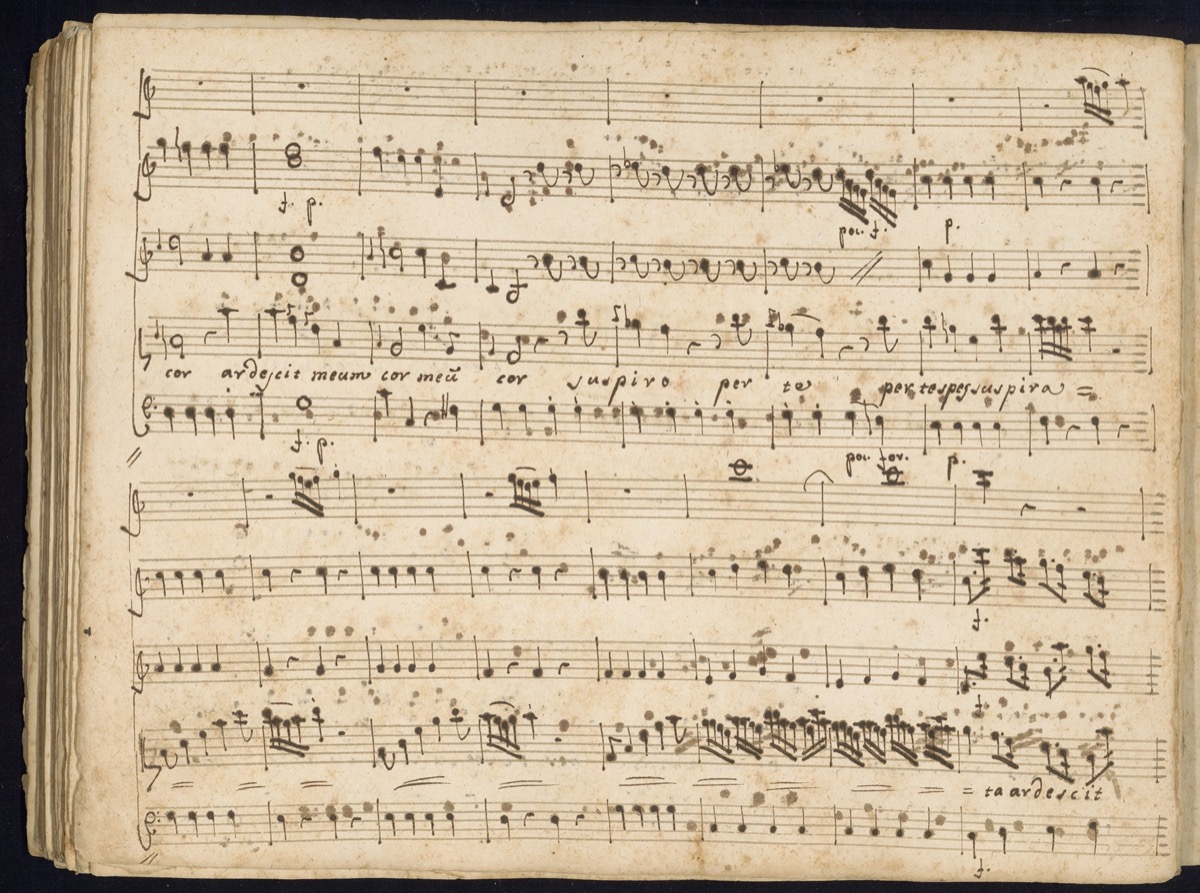 f. p.
poc. f. p.
cor ardescit meum cor meū cor suspiro per te per te spes suspira =
f. p.
poc. for. p.
f.
f.
= ta ardescit
f.